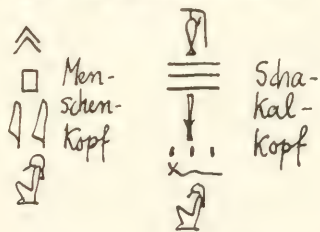 Men-
schen-
kopf
Scha-
kal-
kopf